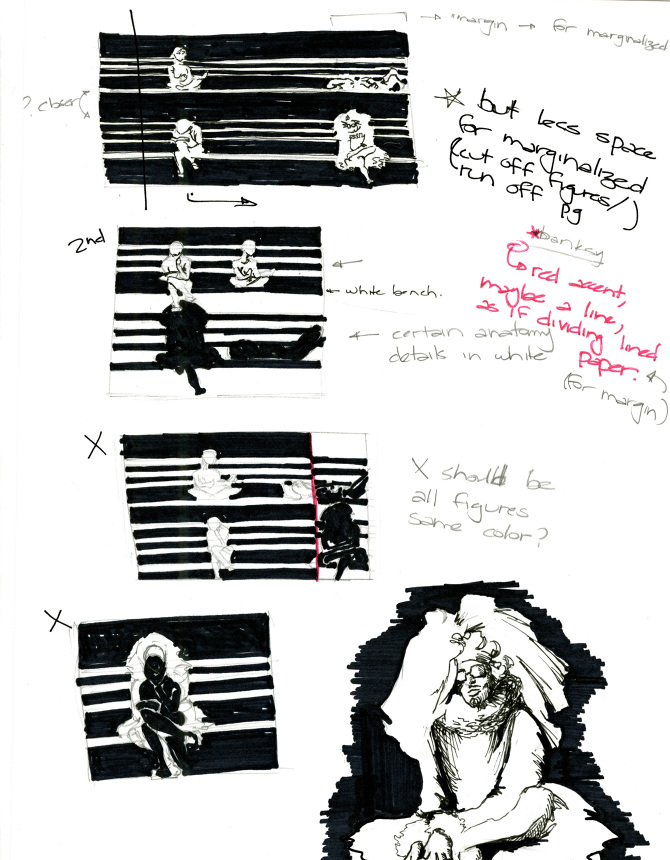 → margin → for marginalized
? closer
* but less space
for marginalized
(cut off figures/)
run off
pg
2nd
*banksy
red accent,
maybe a line,
as if dividing lined
paper.
(for margin)
← white bench.
← certain anatomy
details in white
X
X should be
all figures
same color?
X